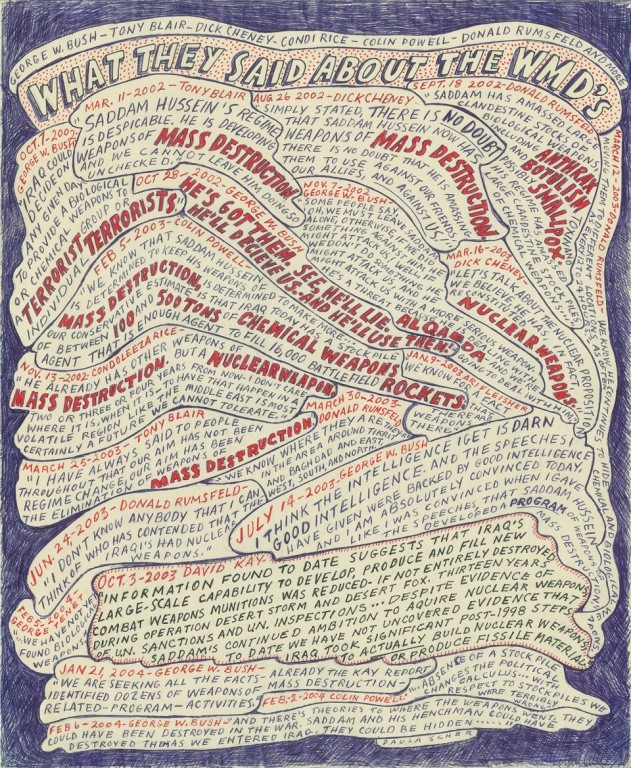 GEORGE W. BUSH - TONY BLAIR - DICK CHENEY - CONDI RICE - COLIN POWELL - DONALD RUMSFELD AND MORE
WHAT THEY SAID ABOUT THE WMD'S
OCT. 7-2002
GEORGE W. BUSH
"IRAQ COULD
DECIDE ON
ANY GIVEN DAY
TO PROVIDE A BIOLOGICAL
OR CHEMICAL WEAPONS TO
A TERRORIST GROUP OR
INDIVIDUAL TERRORISTS
MAR. 11-2002-TONY BLAIR
SADDAM HUSSEIN'S REGIME
IS DESPICABLE, HE IS DEVELOPING
WEAPONS OF MASS DESTRUCTION
AND WE CANNOT LEAVE HIM DOING SO
UNCHECKED.
AUG 26 2002-DICK CHENEY
SIMPLY STATED, THERE IS NO DOUBT
THAT SADDAM HUSSEIN NOW HAS
WEAPONS OF MASS DESTRUCTION
THERE IS NO DOUBT THAT HE IS AMASSING
THEM TO USE AGAINST OUR FRIENDS,
OUR ALLIES, AND AGAINST US.
SEPT. 18 2002-DONALD RUMSFELD
SADDAM HAS AMASSED LARGE
CLANDESTINE STOCKS OF
BIOLOGICAL WEAPONS
INCLUDING ANTHRAX
BOTULISM
POSSIBLY SMALLPOX
MARCH 12-2003-DONALD RUMSFELD-
OCT 28-2002-GEORGE W. BUSH
HE'S GOT THEM, SEE, HE'LL LIE,
HE'LL DECEIVE US, AND HE'LL USE THEM!
NOV. 7-2002
GEORGE W. BUSH-
"SOME PEOPLE SAY,
OH, WE MUST LEAVE SADDAM
ALONE, OTHERWISE, IF WE DID
SOMETHING AGAINST HIM, HE
MIGHT ATTACK US. WELL, IF
WE DON'T DO SOMETHING HE
MIGHT ATTACK US, AND HE
MIGHT ATTACK US WITH A MORE SERIOUS WEAPON
HE'S A THREAT BECAUSE HE IS DEALING WITH
AL QAEDA
MAR. 16-2003
DICK CHENEY
"LET'S TALK ABOUT THE NUCLEAR PROPOSITION
WE BELIEVE HE HAS, IN FACT,
RECONSTITUTED
NUCLEAR WEAPONS
FEB 5-2003-COLIN POWELL
WE KNOW THAT SADDAM HUSSEIN
IS DETERMINED TO KEEP HIS WEAPONS OF
MASS DESTRUCTION, IS DETERMINED TO MAKE MORE
OUR CONSERVATIVE ESTIMATE IS THAT IRAQ TODAY HAS A STOCKPILE
OF BETWEEN 100 AND 500 TONS OF CHEMICAL WEAPONS
AGENT THAT IS ENOUGH AGENT TO FILL 16,000 BATTLEFIELD ROCKETS
JAN. 9-2003-ARI FLEISHER
WE KNOW FOR A FACT
THERE ARE
WEAPONS
THERE."
NOV. 13-2002-CONDOLEEZA RICE-
"HE ALREADY HAS OTHER WEAPONS OF
MASS DESTRUCTION. BUT A NUCLEAR WEAPON,
TWO OR THREE OR FOUR YEARS FROM NOW- I DON'T CARE
WHERE IT IS, WHEN IT IS- TO HAVE THAT HAPPEN IN A
VOLATILE REGION LIKE THE MIDDLE EAST IS MOST
CERTAINLY A FUTURE WE CANNOT TOLERATE.
MARCH 25-2003-TONY BLAIR
"I HAVE ALWAYS SAID TO PEOPLE
THROUGHOUT THAT OUR AIM HAS NOT BEEN
REGIME CHANGE, OUR AIM HAS BEEN
THE ELIMINATION OF WEAPONS OF
MASS DESTRUCTION
MARCH 30-2003
DONALD RUMSFELD
"WE KNOW WHERE THEY ARE. THEY'RE
IN THE AREA AROUND TIKRIT
AND BAGHDAD AND EAST,
WEST, SOUTH, AND NORTH
JUN. 24-2003-DONALD RUMSFELD-
"I DON'T KNOW ANYBODY THAT I CAN
THINK OF WHO HAS CONTENDED THAT THE
IRAQIS HAD NUCLEAR
WEAPONS."
JULY 14-2003-GEORGE W. BUSH
I THINK THE INTELLIGENCE I GET IS DARN
GOOD INTELLIGENCE, AND THE SPEECHES I
HAVE GIVEN WERE BACKED BY GOOD INTELLIGENCE
AND I AM ABSOLUTELY CONVINCED TODAY,
LIKE I WAS CONVINCED WHEN I GAVE
THE SPEECHES, THAT SADDAM HUSSEIN
DEVELOPED A PROGRAM
OCT. 3-2003 DAVID KAY-
"INFORMATION FOUND TO DATE SUGGESTS THAT IRAQ'S
LARGE-SCALE CAPABILITY TO DEVELOP, PRODUCE AND FILL NEW
COMBAT WEAPONS MUNITIONS WAS REDUCED- IF NOT ENTIRELY DESTROYED
DURING OPERATION DESERT STORM AND DESERT FOX, THIRTEEN YEARS
OF U.N. SANCTIONS AND U.N. INSPECTIONS... DESPITE EVIDENCE OF
SADDAM'S CONTINUED AMBITION TO AQUIRE NUCLEAR WEAPONS
TO DATE WE HAVE NOT UNCOVERED EVIDENCE THAT
IRAQ TOOK SIGNIFICANT POST-1998 STEPS
TO ACTUALLY BUILD NUCLEAR WEAPONS
OR PRODUCE FISSILE MATERIAL
FEB 5-2004
GEORGE TENET
"WE HAVE NOT YET
FOUND BIOLOGICAL
WEAPONS
JAN 21, 2004-GEORGE W. BUSH-
"WE ARE SEEKING ALL THE FACTS- ALREADY THE KAY REPORT
IDENTIFIED DOZENS OF WEAPONS OF MASS DESTRUCTION-
RELATED-PROGRAM-ACTIVITIES
FEB-2-2004 COLIN POWELL
"...ABSENCE OF A STOCKPILE
CHANGES THE POLITICAL
CALCULUS... WITH
RESPECT TO STOCKPILES WE
WERE WRONG
FEB 6-2004-GEORGE W. BUSH- "AND THERE'S THEORIES TO WHERE THE WEAPONS WENT. THEY
COULD HAVE BEEN DESTROYED IN THE WAR. SADDAM AND HIS HENCHMAN COULD HAVE
DESTROYED THEM AS WE ENTERED IRAQ. THEY COULD BE HIDDEN
PAULA SCHER